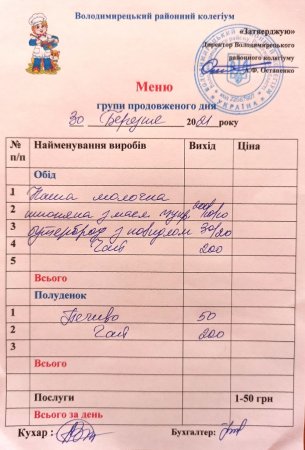 Володимирецький районний колегіум
«Затверджую»
Директор Володимирецького
районного колегіуму
А.Ф. Остапенко
Меню
групи продовженого дня
30 Березня 2021 року
№ п/п Найменування виробів Вихід Ціна
Обід
1 Каша молочна
2 пшоняна з масл
3 бутерброд з повидлом 30/20
4 Чай 200
5
Всього
Полуденок
1 Печиво 50
2 Чай 200
3
Всього
Послуги 1-50 грн
Всього за день
Кухар : Бухгалтер: